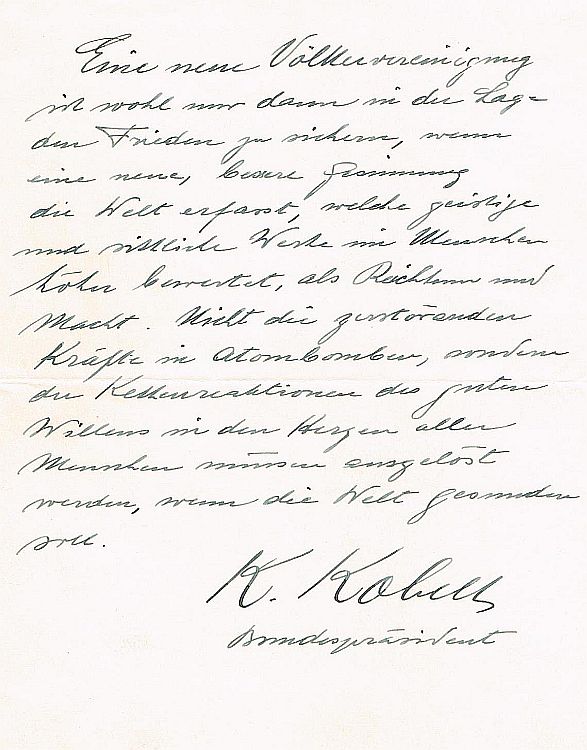 Eine neue Völkervereinigung
ist wohl nur dann in der Lage
den Frieden zu sichern, wenn
eine neue, bessere Gesinnung
die Welt erfasst, welche geistige
und sittliche Werte im Menschen
höher bewertet, als Reichtum und
Macht. Nicht die zerstörenden
Kräfte in Atombomben, sondern
die Kettenreaktionen des guten
Willens in den Herzen aller
Menschen müssen ausgelöst
werden, wenn die Welt gesunden
soll.
K. Kobelt
Bundespräsident